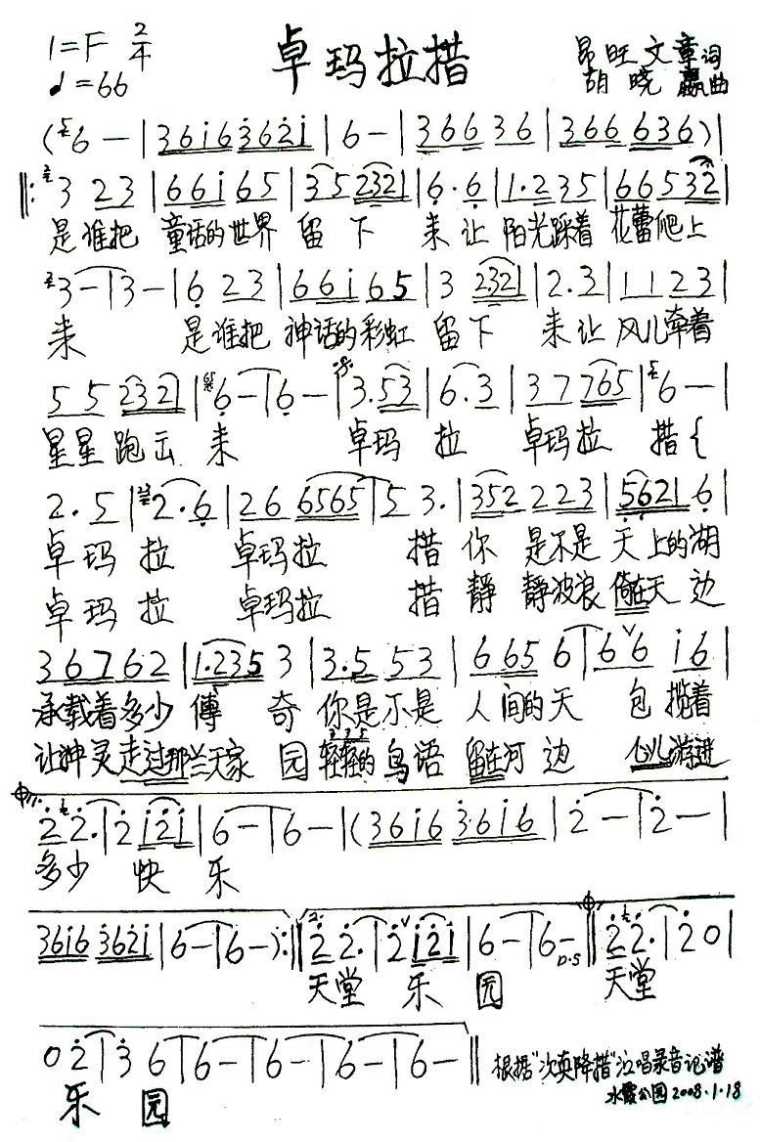 1=F 2/4 卓玛拉措 昂旺文章词
♩=66 胡晓 曲
(6 — | 3 6 i 6 3 6 2 i | 6 — | 3 6 6 3 6 | 3 6 6 6 3 6 ) |
‖: 3 2 3 | 6 6 i 6 5 | 3 5 2 3 2 1 | 6 · 6 | 1 · 2 3 5 | 6 6 5 3 2 |
是谁把 童话的世界 留 下 来 让 阳光踩着 花蕾爬上
3 — | 3 — | 6 2 3 | 6 6 i 6 5 | 3 2 3 2 1 | 2 . 3 | 1 1 2 3 |
来 是谁把 神话的彩虹 留 下 来 让 风儿牵着
5 5 2 3 2 1 | 6 — | 6 — | 3 . 5 3 | 6 . 3 | 3 7 7 6 5 | 6 — |
星星跑云 来 卓玛 拉 卓玛拉 措 {
2 . 5 | 2 . 6 | 2 6 6 5 6 5 | 5 3 . | 3 5 2 2 2 3 | 5 6 2 1 6 |
卓玛 拉 卓玛拉 措 你 是不是 天上的湖
卓玛 拉 卓玛拉 措 静 静波浪 倚在天 边
3 6 7 6 2 | 1 . 2 3 5 3 | 3 . 5 5 3 | 6 6 5 6 | 6 6 i 6 |
承载着多少 傳 奇 你是不是 人间的天 包 揽着
让神灵走过那兰天家 园 轻轻的 鸟语 留在河 边 心儿游进
2 2 . | 2 i 2 i | 6 — | 6 — | ( 3 6 i 6 3 6 i 6 | 2 — | 2 — |
多少 快 乐
3 6 i 6 3 6 2 i | 6 — | 6 — ) :‖ 2. 2 2 . | 2 i 2 i | 6 — | 6 — D.S ‖ 2 2 . | 2 0 |
天堂 乐 园 天堂
0 2 | 3 6 | 6 — | 6 — | 6 — | 6 — ‖ 根据"次真降措"演唱录音记谱
乐 园 水霞公园2008.1.18